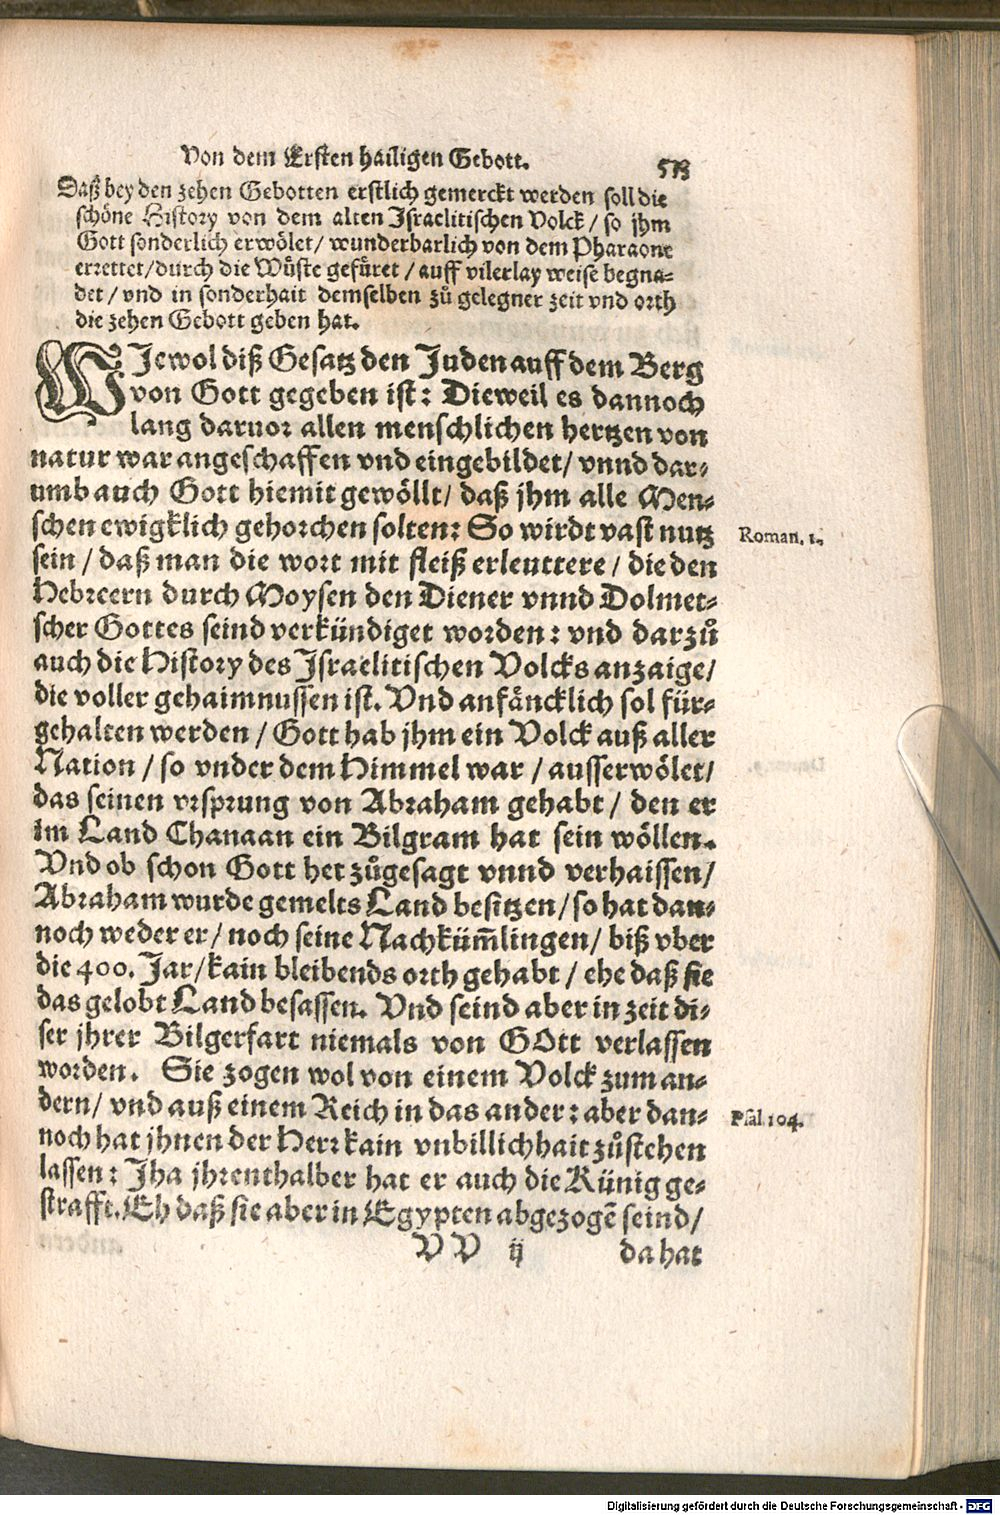 Von dem Ersten hailigen Gebott.
Daß bey den zehen Gebotten erstlich gemerckt werden soll die
schöne History von dem alten Israelitischen Volck / so jhm
Gott sonderlich erwölet / wunderbarlich von dem Pharaone
errettet / durch die Wüste gefüret / auff vilerlay weise begna-
det / vnd in sonderhait demselben zů gelegner zeit vnd orth
die zehen Gebott geben hat.
WJewol diß Gesatz den Juden auff dem Berg
von Gott gegeben ist: Dieweil es dannoch
lang daruor allen menschlichen hertzen von
natur war angeschaffen vnd eingebildet / vnnd dar-
umb auch Gott hiemit gewöllt / daß jhm alle Men-
schen ewigklich gehorchen solten: So wirdt vast nutz
Roman. 1.
sein / daß man die wort mit fleiß erleuttere / die den
Hebreern durch Moysen den Diener vnnd Dolmet-
scher Gottes seind verkündiget worden: vnd darzů
auch die History des Israelitischen Volcks anzaige /
die voller gehaimnussen ist. Vnd anfäncklich sol für-
gehalten werden / Gott hab jhm ein Volck auß aller
Nation / so vnder dem Himmel war / ausserwölet /
das seinen vrsprung von Abraham gehabt / den er
im Land Chanaan ein Bilgram hat sein wöllen.
Vnd ob schon Gott het zůgesagt vnnd verhaissen /
Abraham wurde gemelts Land besitzen / so hat dan-
noch weder er / noch seine Nachküm̃lingen / biß vber
die 400. Jar / kain bleibends orth gehabt / ehe daß sie
das gelobt Land besassen. Vnd seind aber in zeit di-
ser jhrer Bilgerfart niemals von GOtt verlassen
worden. Sie zogen wol von einem Volck zum an-
dern / vnd auß einem Reich in das ander: aber dan-
Psal. 104.
noch hat jhnen der Herr kain vnbillichhait zůstehen
lassen: Jha jhrenthalber hat er auch die Künig ge-
strafft. Eh daß sie aber in Egypten abgezogẽ seind /
VV ij da hat
Digitalisierung gefördert durch die Deutsche Forschungsgemeinschaft - DFG